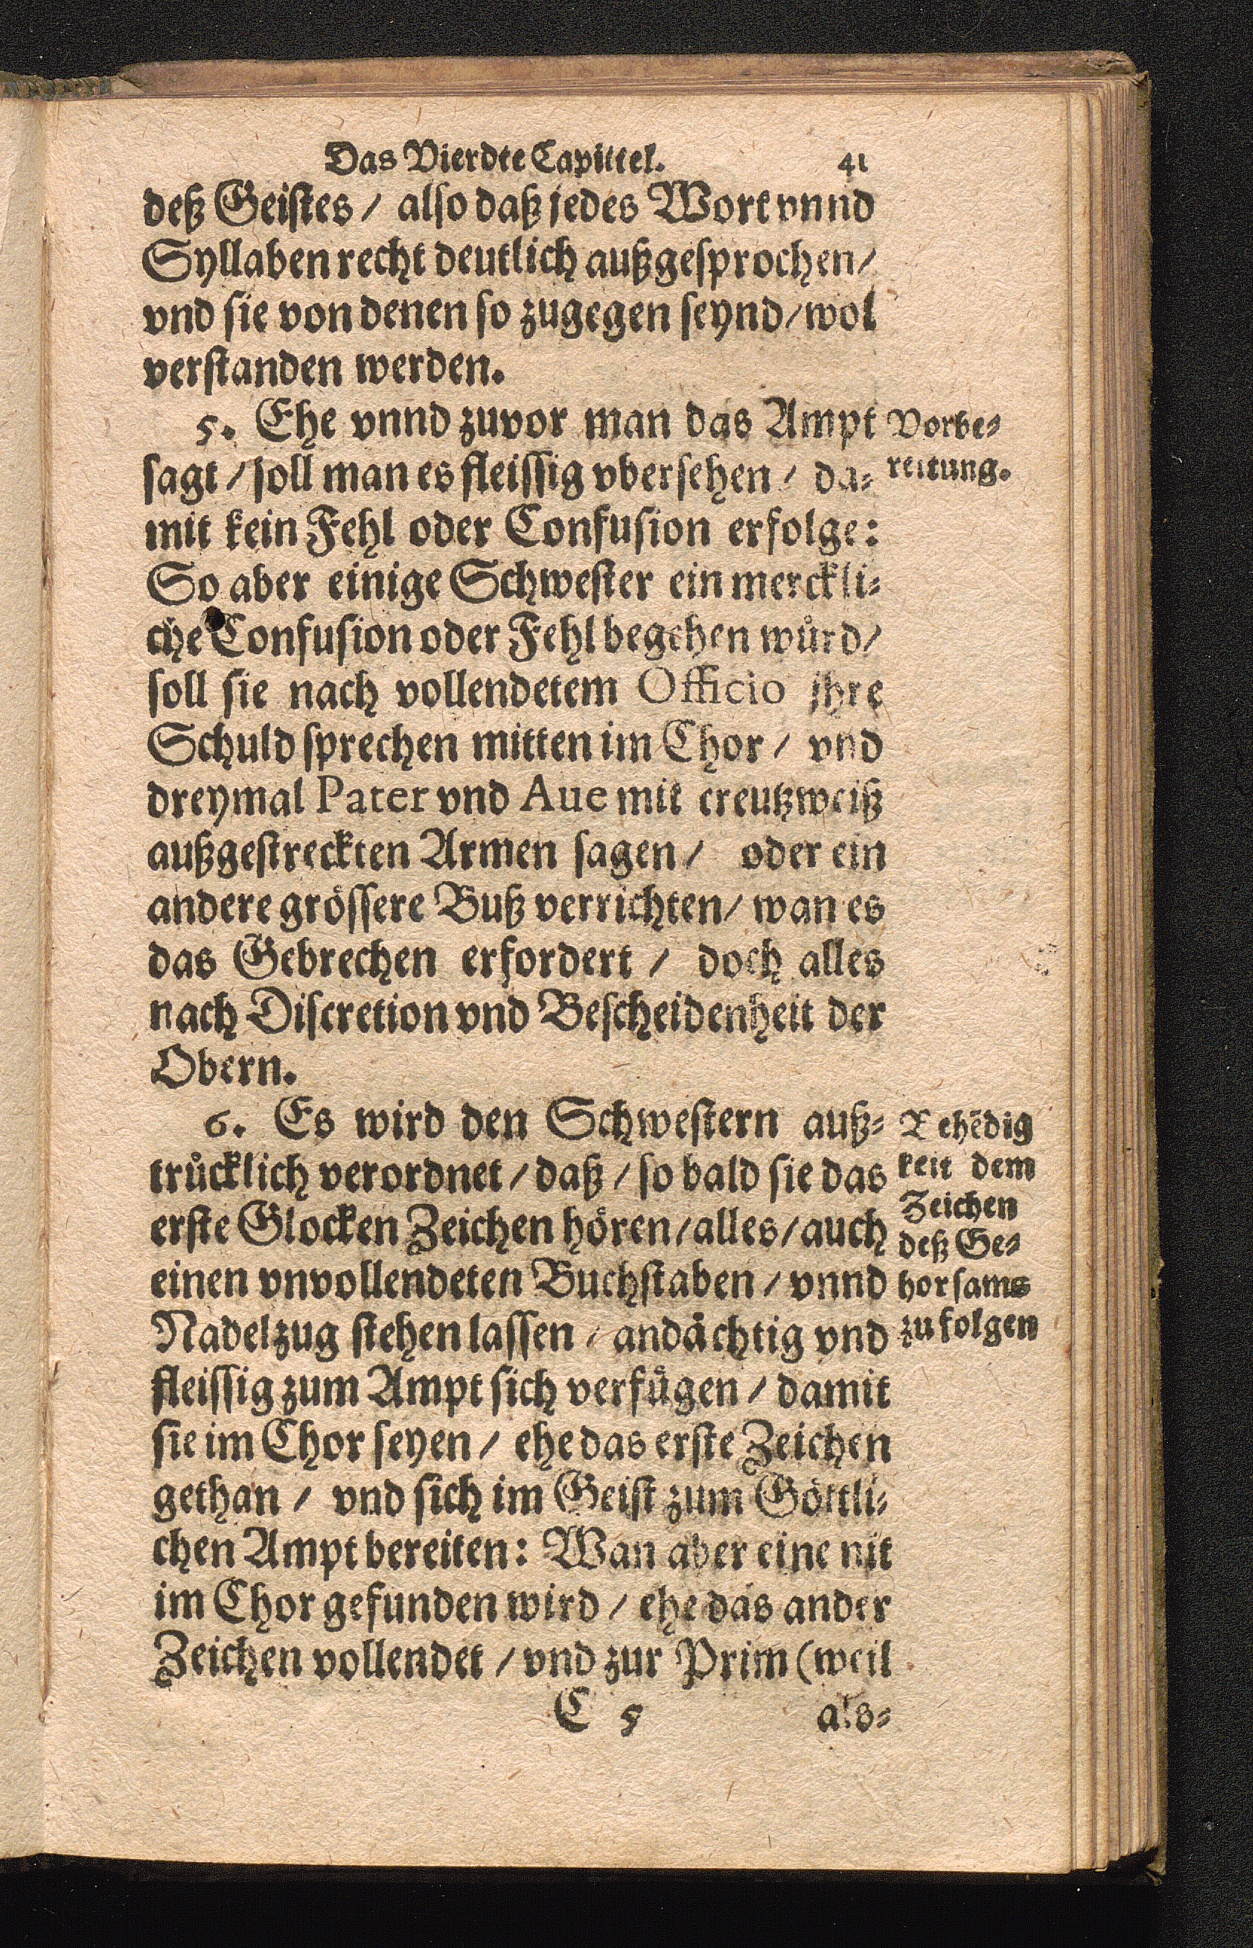 Das Vierdte Capittel. 41
deß Geistes / also daß jedes Wort vnnd
Syllaben recht deutlich außgesprochen /
vnd sie von denen so zugegen seynd / wol
verstanden werden.
5. Ehe vnnd zuvor man das Ampt
sagt / soll man es fleissig vbersehen / da-
mit kein Fehl oder Confusion erfolge:
So aber einige Schwester ein merckli-
che Confusion oder Fehl begehen wuͤrd /
soll sie nach vollendetem Officio jhre
Schuld sprechen mitten im Chor / vnd
dreymal Pater vnd Aue mit creutzweiß
außgestreckten Armen sagen / oder ein
andere groͤssere Buß verrichten / wan es
das Gebrechen erfordert / doch alles
nach Discretion vnd Bescheidenheit der
Obern.
6. Es wird den Schwestern auß-
truͤcklich verordnet / daß / so bald sie das
erste Glocken Zeichen hoͤren / alles / auch
einen vnvollendeten Buchstaben / vnnd
Nadelzug stehen lassen / andaͤchtig vnd
fleissig zum Ampt sich verfuͤgen / damit
sie im Chor seyen / ehe das erste Zeichen
gethan / vnd sich im Geist zum Goͤttli-
chen Ampt bereiten: Wan aber eine nit
im Chor gefunden wird / ehe das ander
Zeichen vollendet / vnd zur Prim (weil
C 5 als-
Vorbe-
reitung.
keit dem
Zeichen
deß Ge-
horsams
zu folgen